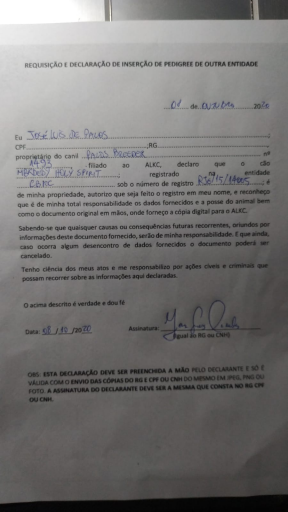 REQUISIÇÃO E DECLARAÇÃO DE INSERÇÃO DE PEDIGREE DE OUTRA ENTIDADE
01 de OUTUBRO 2020
Eu JOSÉ LUIS DE
CPF ;RG
proprietário do canil BROEDER nº
1493 , filiado ao ALKC, declaro que o cão
HOLY SPIRIT ; registrado na entidade
CBKC sob o número de registro ; é
de minha propriedade, autorizo que seja feito o registro em meu nome, e reconheço
que é de minha total responsabilidade os dados fornecidos e a posse do animal bem
como o documento original em mãos, onde forneço a cópia digital para o ALKC.
Sabendo-se que quaisquer causas ou consequências futuras recorrentes, oriundos por
informações deste documento fornecido, serão de minha responsabilidade. E que ainda,
caso ocorra algum desencontro de dados fornecidos o documento poderá ser
cancelado.
Tenho ciência dos meus atos e me responsabilizo por ações cíveis e criminais que
possam recorrer sobre as informações aqui declaradas.
O acima descrito é verdade e dou fé
Data: /10 /2020 Assinatura:
(Igual do RG ou CNH)
OBS: ESTA DECLARAÇÃO DEVE SER PREENCHIDA A MÃO PELO DECLARANTE E SÓ É
VÁLIDA COM O ENVIO DAS CÓPIAS DO RG E CPF OU CNH DO MESMO EM JPEG, PNG OU
FOTO. A ASSINATURA DO DECLARANTE DEVE SER A MESMA QUE CONSTA NO RG CPF
OU CNH.